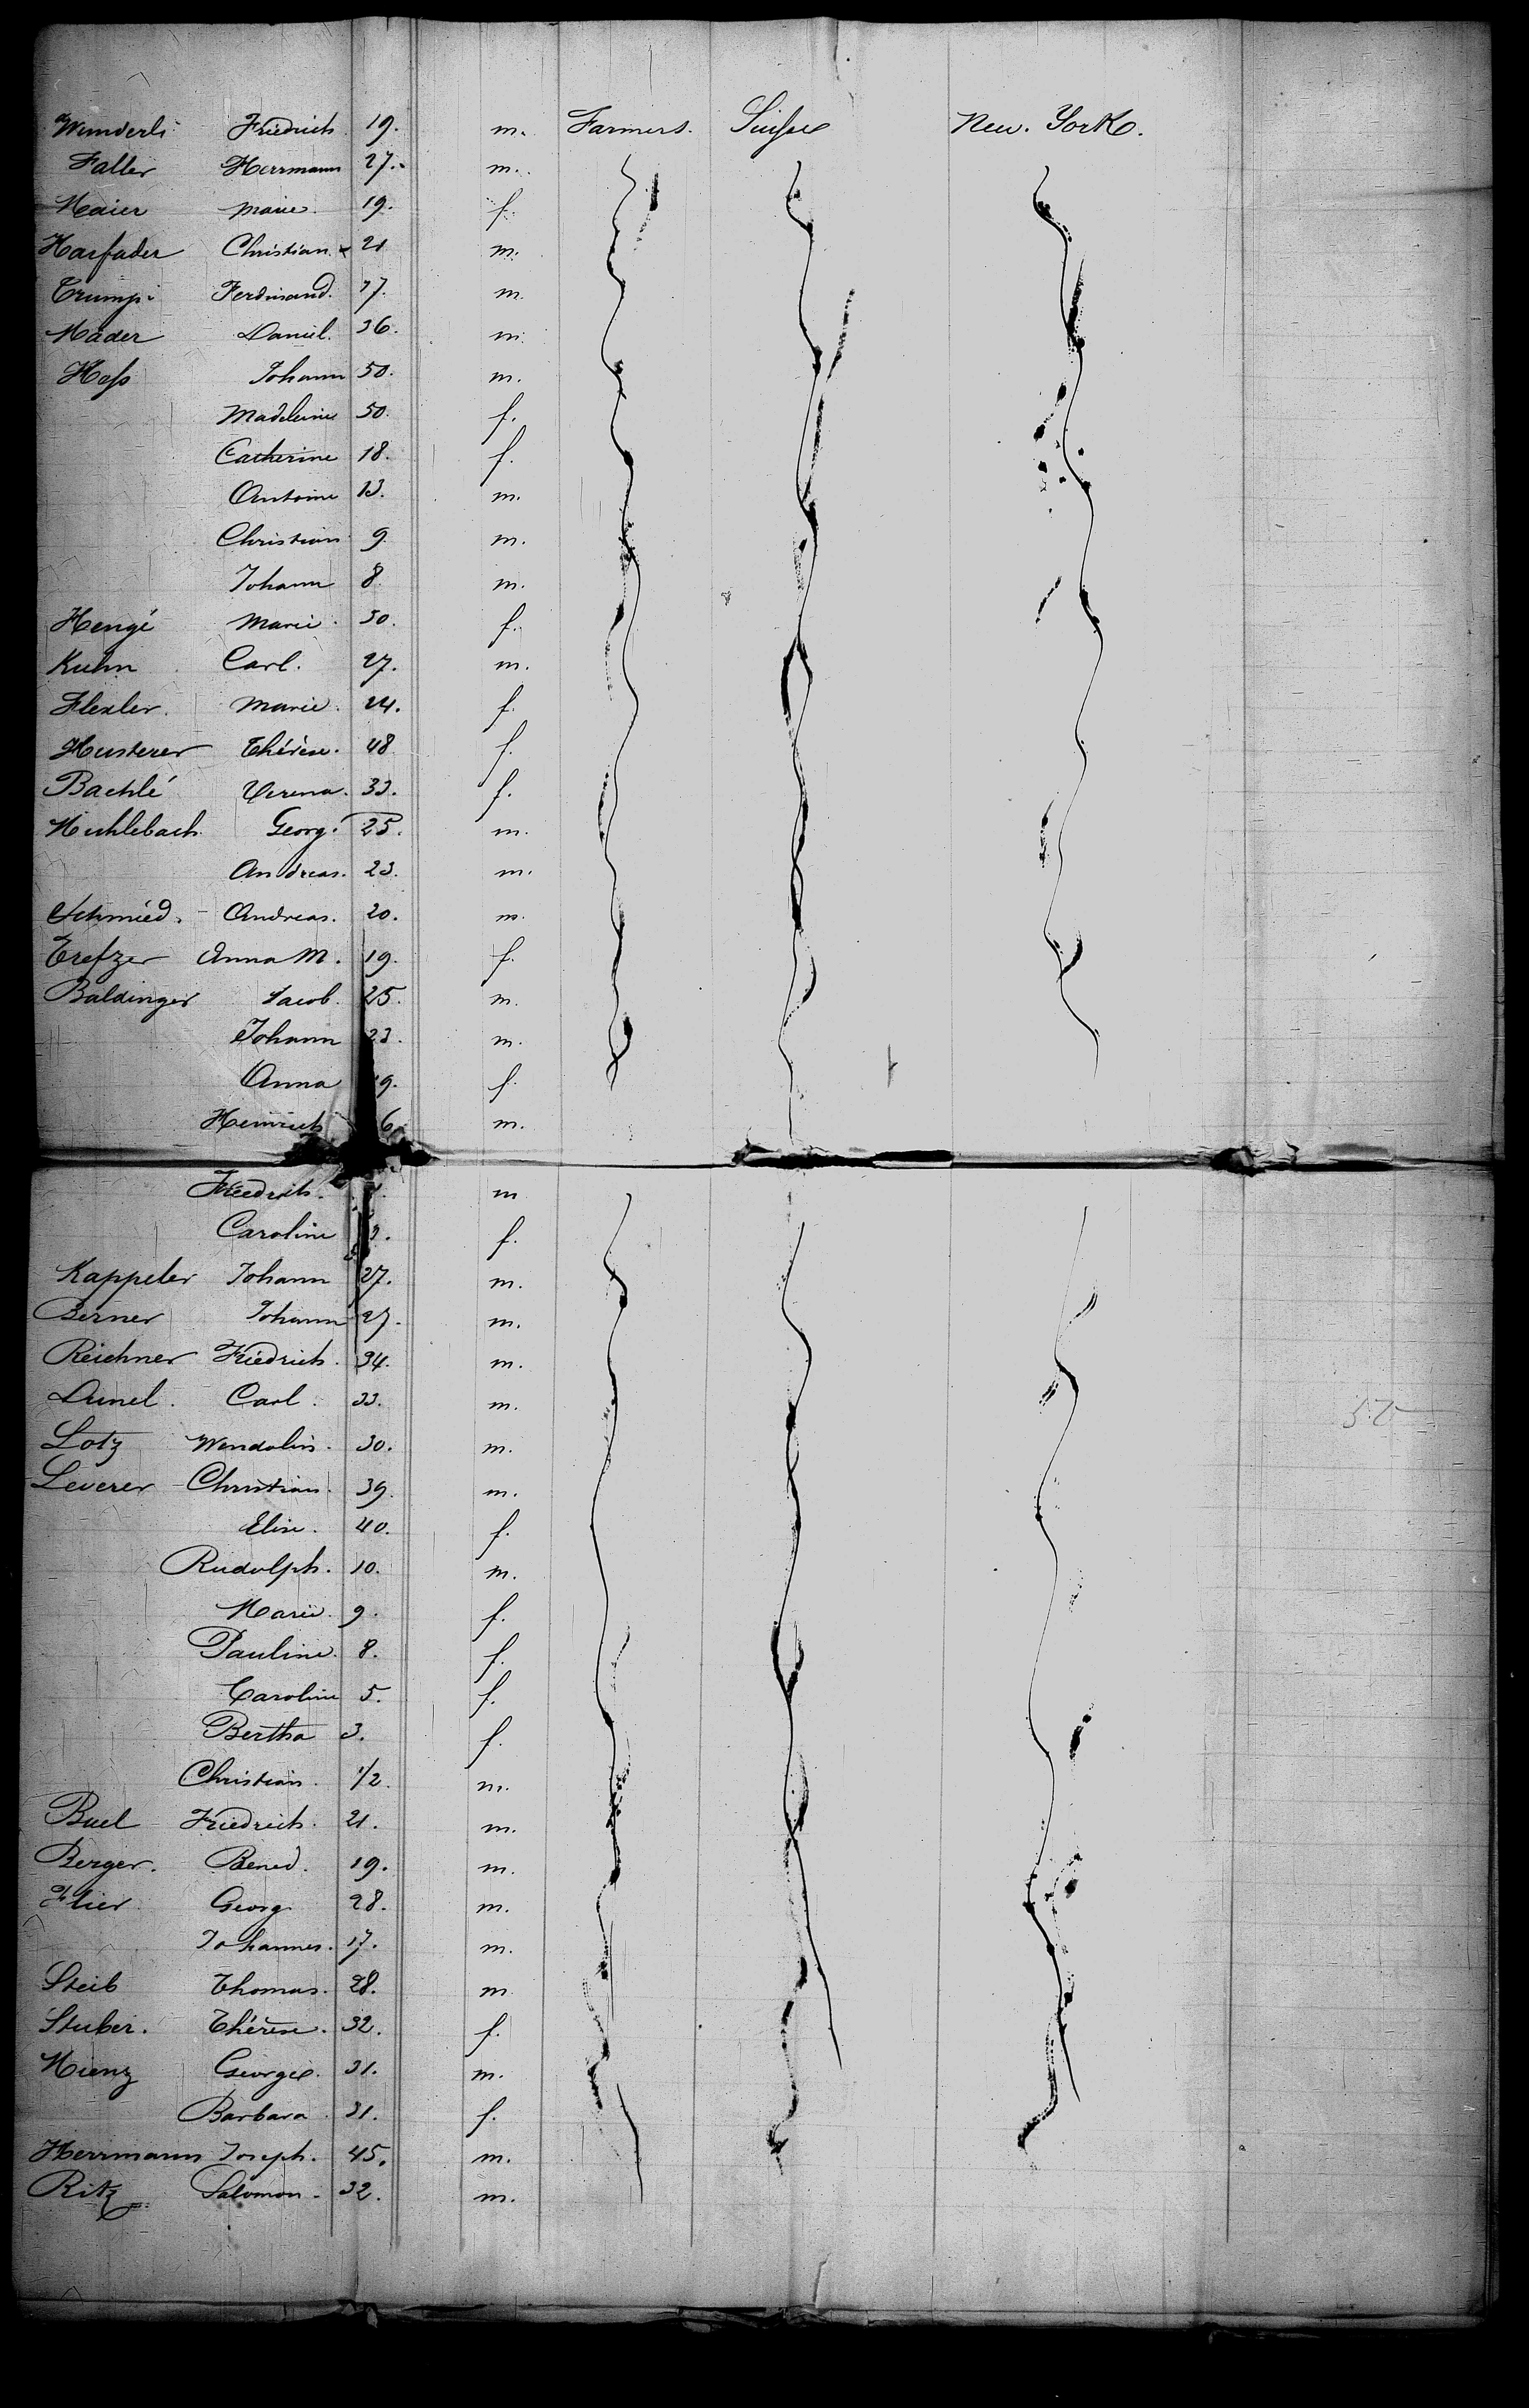 Wunderli Friedrich 19. m. Farmers. Suisse New. York.
Faller Herrmann 27. m.
Maier Marie. 19. f.
Harfader Christian. 21 m.
Trumpi Ferdinand. 17. m.
Mäder Daniel. 36. m.
Hess Johann 50. m.
Madeleine 50. f.
Catherine 18. f.
Antoine 13. m.
Christian 9. m.
Johann 8. m.
Hengé Marie. 30. f.
Kuhn Carl. 27. m.
Flexler. Marie. 24. f.
Husterer Thérèse. 48 f.
Bachlé Verena. 33. f.
Muhlebach. Georg. 25. m.
Andreas. 23. m.
Schmied. Andreas. 20. m.
Trefzer Anna M. 19. f.
Baldinger Jacob. 25. m.
Johann 23. m.
Anna 19. f.
Heinrich 6. m.
Friedrich. m
Caroline f.
Kappeler Johann 27. m.
Berner Johann 27. m.
Reichner Friedrich. 34. m.
Dunel. Carl. 33. m.
Lotz Wendolin. 30. m.
Leverer Christian. 39. m.
Elise. 40. f.
Rudolph. 10. m.
Marie. 9. f.
Pauline. 8. f.
Caroline 5. f.
Bertha 3. f.
Christian. 1/2 m.
Buel Friedrich. 21. m.
Berger. Bened. 19. m.
Flier Georg. 28. m.
Johannes. 17. m.
Steib Thomas. 28. m
Stuber. Thérèse. 32. f.
Mienz George. 31. m.
Barbara. 31. f.
Herrmann Joseph. 45. m.
Ritz Salomon. 32. m.